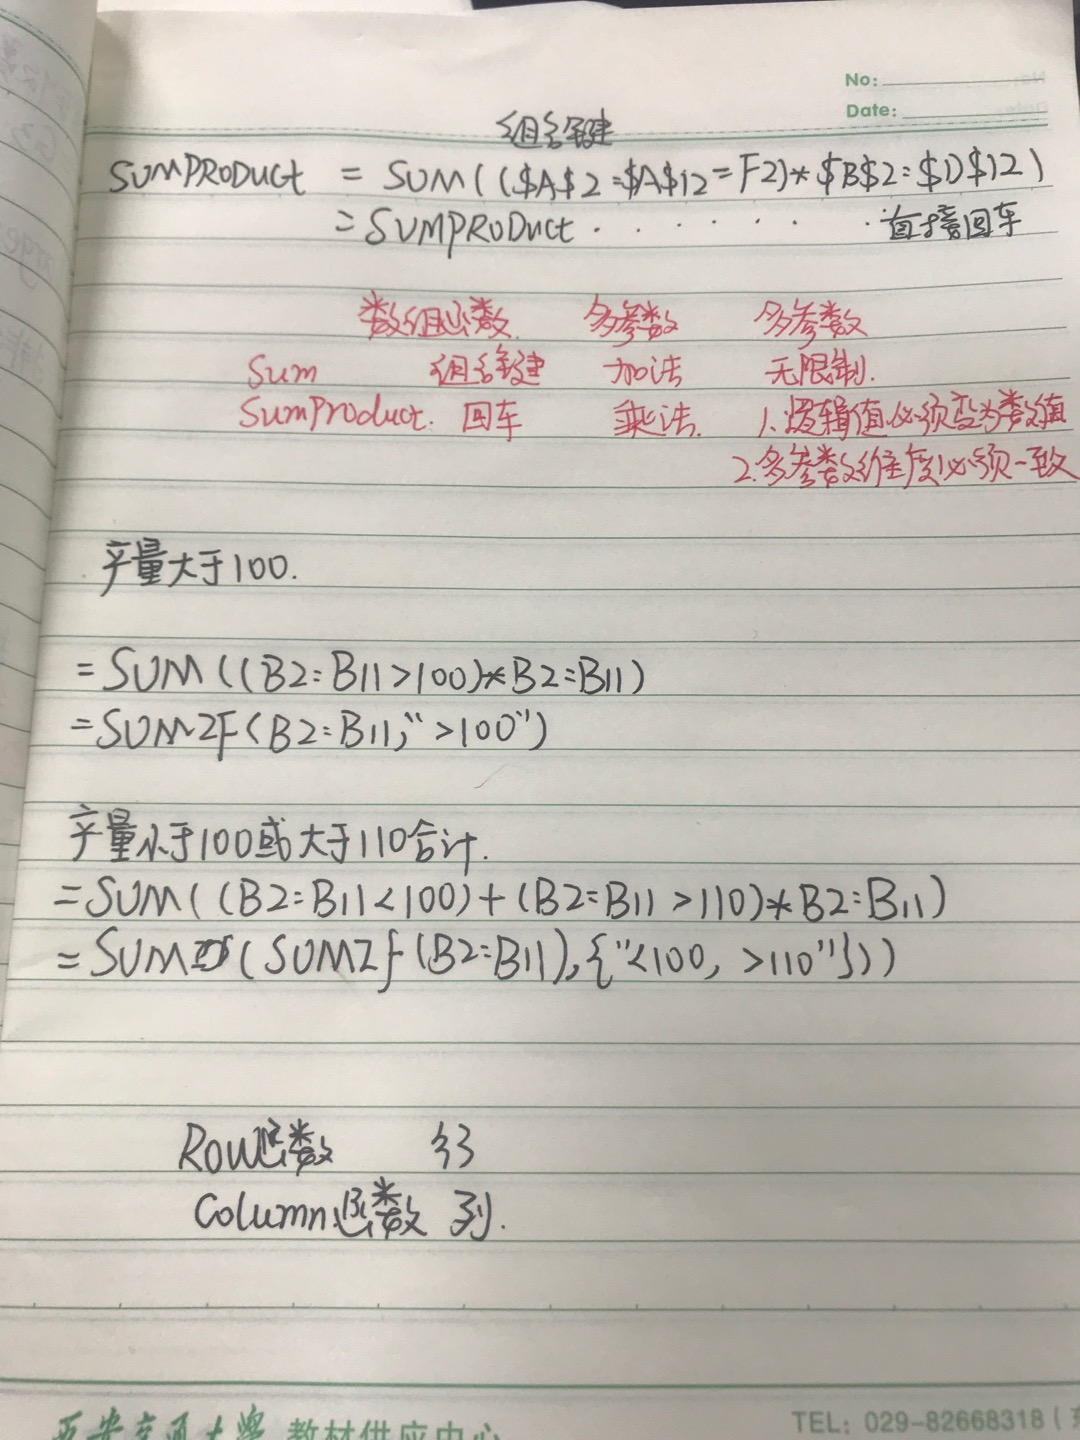 No:
Date:
组合键
SUMPRODUCT = SUM(($A$2:$A$12=F2)*$B$2:$D$12)
=SUMPRODUCT · · · · · · · 直接回车
数组函数 多参数 多参数
Sum 组合键 加法 无限制.
SumProduct. 回车 乘法. 1.逻辑值必须变为数值
2.多参数维度必须一致
产量大于100.
=SUM((B2:B11>100)*B2:B11)
=SUMIF(B2:B11,">100")
产量小于100或大于110合计.
=SUM((B2:B11<100)+(B2:B11>110)*B2:B11)
=SUM(SUMIF(B2:B11),{"<100, >110"}))
Row函数 行
Column函数 列.
西安交通大学 教材供应中心
TEL: 029-82668318 (